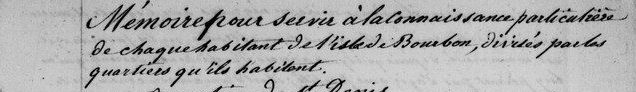 Mémoire pour servir à la connaissance particulière
de chaque habitant de l'isle de Bourbon, divisés par les
quartiers qu'ils habitent.
St Denis